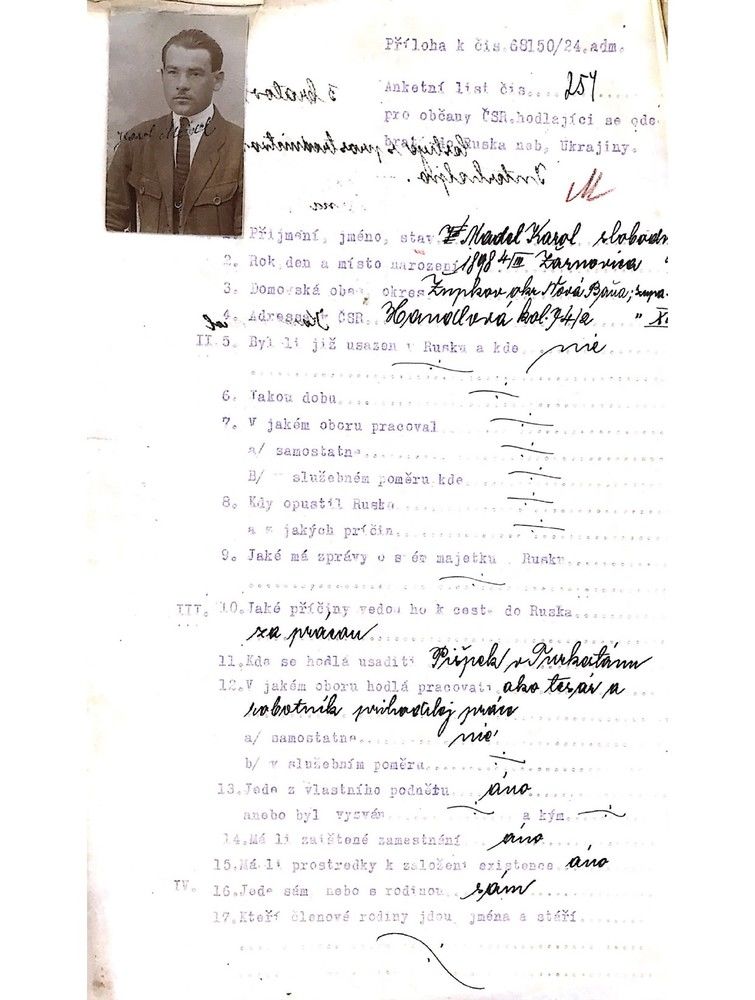 Příloha k čís.68150/24.adm.
Anketní list čís.... 257
pro občany ČSR.hodlající se ode
brati do Ruska neb, Ukrajiny.
M
Karol Madel
1. Přijmení, jméno, stav Madel Karol slobodn
2. Rok den a místo narození 1898 4/III Žarnovica
3. Domovská obec okres Župkov okr. Nová Baňa, župa
4. Adresa v ČSR. Handlová kol. 74/a " XI
II.5. Byl li již usazen v Rusku a kde nie
6. Jakou dobu
7. V jakém oboru pracoval
a/ samostatně
B/ v služebném poměru kde
8. Kdy opustil Rusko
a z jakých príčin
9. Jaké má zprávy o svém majetku v Rusku
III. 10. Jaké příčiny vedou ho k cestě do Ruska
za prácou
11. Kde se hodlá usaditi Pišpek v Turkstánu
12. V jakém oboru hodlá pracovati ako tesár a
robotník prihodilej práci
a/ samostatne nie
b/ v služebním poměru
13. Jede z vlastního podnětu áno
anebo byl vyzván a kým
14. Má li zaištené zamestnání áno
15. Má li prostredky k založení existence áno
IV. 16. Jede sám nebo s rodinou sám
17. Kteří členové rodiny jdou jména a stáří